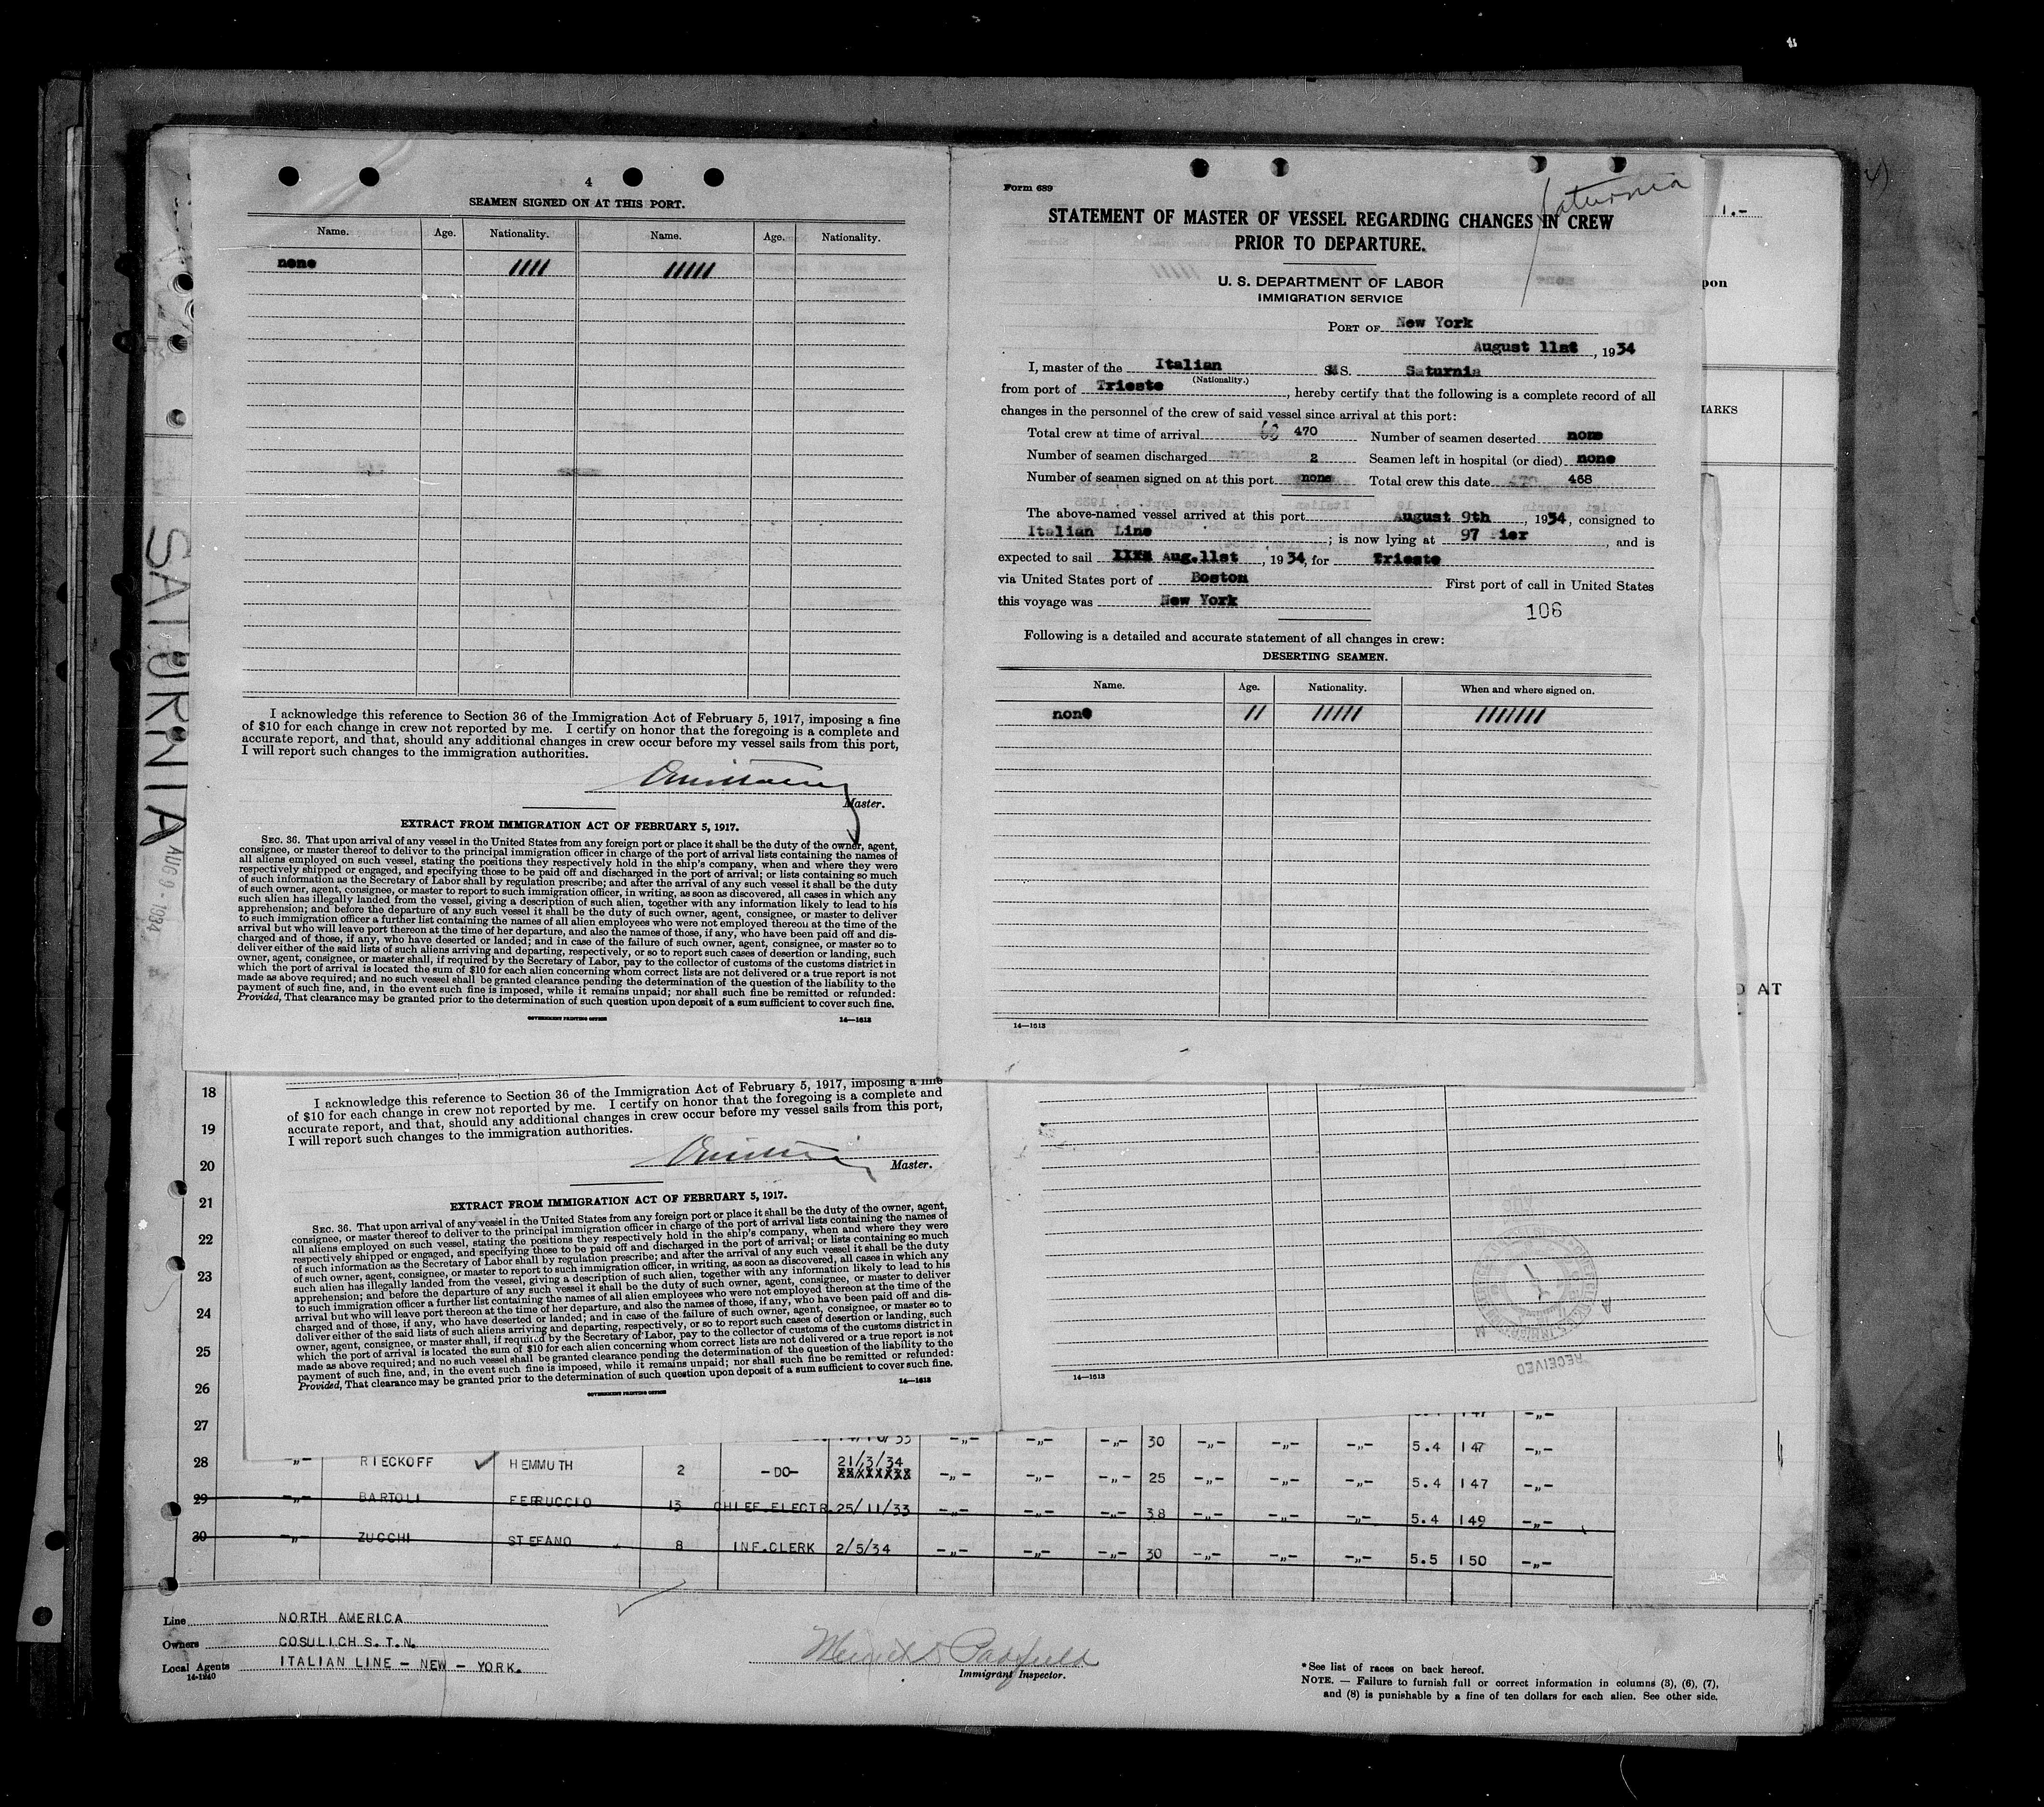 4
SEAMEN SIGNED ON AT THIS PORT.
Name. Age. Nationality. Name. Age. Nationality.
none //// /////
I acknowledge this reference to Section 36 of the Immigration Act of February 5, 1917, imposing a fine
of $10 for each change in crew not reported by me. I certify on honor that the foregoing is a complete and
accurate report, and that, should any additional changes in crew occur before my vessel sails from this port,
I will report such changes to the immigration authorities.
Master.
EXTRACT FROM IMMIGRATION ACT OF FEBRUARY 5, 1917.
SEC. 36. That upon arrival of any vessel in the United States from any foreign port or place it shall be the duty of the owner, agent,
consignee, or master thereof to deliver to the principal immigration officer in charge of the port of arrival lists containing the names of
all aliens employed on such vessel, stating the positions they respectively hold in the ship's company, when and where they were
respectively shipped or engaged, and specifying those to be paid off and discharged in the port of arrival; or lists containing so much
of such information as the Secretary of Labor shall by regulation prescribe; and after the arrival of any such vessel it shall be the duty
of such owner, agent, consignee, or master to report to such immigration officer, in writing, as soon as discovered, all cases in which any
such alien has illegally landed from the vessel, giving a description of such alien, together with any information likely to lead to his
apprehension; and before the departure of any such vessel it shall be the duty of such owner, agent, consignee, or master to deliver
to such immigration officer a further list containing the names of all alien employees who were not employed thereon at the time of the
arrival but who will leave port thereon at the time of her departure, and also the names of those, if any, who have been paid off and dis-
charged and of those, if any, who have deserted or landed; and in case of the failure of such owner, agent, consignee, or master so to
deliver either of the said lists of such aliens arriving and departing, respectively, or so to report such cases of desertion or landing, such
owner, agent, consignee, or master shall, if required by the Secretary of Labor, pay to the collector of customs of the customs district in
which the port of arrival is located the sum of $10 for each alien concerning whom correct lists are not delivered or a true report is not
made as above required; and no such vessel shall be granted clearance pending the determination of the question of the liability to the
payment of such fine, and, in the event such fine is imposed, while it remains unpaid; nor shall such fine be remitted or refunded:
Provided, That clearance may be granted prior to the determination of such question upon deposit of a sum sufficient to cover such fine.
GOVERNMENT PRINTING OFFICE 14—1613
Form 689
Saturnia
STATEMENT OF MASTER OF VESSEL REGARDING CHANGES IN CREW
PRIOR TO DEPARTURE.
U. S. DEPARTMENT OF LABOR
IMMIGRATION SERVICE
PORT OF New York
August 11st, 1934
I, master of the Italian MS. Saturnia
(Nationality.)
from port of Trieste, hereby certify that the following is a complete record of all
changes in the personnel of the crew of said vessel since arrival at this port:
Total crew at time of arrival 470 Number of seamen deserted none
Number of seamen discharged 2 Seamen left in hospital (or died) none
Number of seamen signed on at this port none Total crew this date 468
The above-named vessel arrived at this port August 9th, 1934, consigned to
Italian Line; is now lying at 97 Pier, and is
expected to sail XXXX Aug.11st, 1934, for Trieste
via United States port of Boston First port of call in United States
this voyage was New York
106
Following is a detailed and accurate statement of all changes in crew:
DESERTING SEAMEN.
Name. Age. Nationality. When and where signed on.
none // ///// ///////
14—1613
1.-
pon
MARKS
D AT
SATURNIA
AUG 9 - 1934
I acknowledge this reference to Section 36 of the Immigration Act of February 5, 1917, imposing a fine
of $10 for each change in crew not reported by me. I certify on honor that the foregoing is a complete and
accurate report, and that, should any additional changes in crew occur before my vessel sails from this port,
I will report such changes to the immigration authorities.
Master.
EXTRACT FROM IMMIGRATION ACT OF FEBRUARY 5, 1917.
SEC. 36. That upon arrival of any vessel in the United States from any foreign port or place it shall be the duty of the owner, agent,
consignee, or master thereof to deliver to the principal immigration officer in charge of the port of arrival lists containing the names of
all aliens employed on such vessel, stating the positions they respectively hold in the ship's company, when and where they were
respectively shipped or engaged, and specifying those to be paid off and discharged in the port of arrival; or lists containing so much
of such information as the Secretary of Labor shall by regulation prescribe; and after the arrival of any such vessel it shall be the duty
of such owner, agent, consignee, or master to report to such immigration officer, in writing, as soon as discovered, all cases in which any
such alien has illegally landed from the vessel, giving a description of such alien, together with any information likely to lead to his
apprehension; and before the departure of any such vessel it shall be the duty of such owner, agent, consignee, or master to deliver
to such immigration officer a further list containing the names of all alien employees who were not employed thereon at the time of the
arrival but who will leave port thereon at the time of her departure, and also the names of those, if any, who have been paid off and dis-
charged and of those, if any, who have deserted or landed; and in case of the failure of such owner, agent, consignee, or master so to
deliver either of the said lists of such aliens arriving and departing, respectively, or so to report such cases of desertion or landing, such
owner, agent, consignee, or master shall, if required by the Secretary of Labor, pay to the collector of customs of the customs district in
which the port of arrival is located the sum of $10 for each alien concerning whom correct lists are not delivered or a true report is not
made as above required; and no such vessel shall be granted clearance pending the determination of the question of the liability to the
payment of such fine, and, in the event such fine is imposed, while it remains unpaid; nor shall such fine be remitted or refunded:
Provided, That clearance may be granted prior to the determination of such question upon deposit of a sum sufficient to cover such fine.
GOVERNMENT PRINTING OFFICE 14—1613
14—1613
RECEIVED
18
19
20
21
22
23
24
25
26
27
30 5.4 147
28 -„- RIECKOFF HEMMUTH 2 -DO- 21/3/34 -„- -„- -„- 25 -„- -„- -„- 5.4 147 -„-
29 -„- BARTOLI FERRUCCIO 13 CHIEF.ELECTR. 25/11/33 -„- -„- -„- 38 -„- -„- -„- 5.4 149 -„-
30 -„- ZUCCHI STEFANO 8 INF.CLERK 2/5/34 -„- -„- -„- 30 -„- -„- -„- 5.5 150 -„-
Line NORTH AMERICA
Owners COSULICH S.T.N.
Local Agents ITALIAN LINE - NEW - YORK.
14-1240
Immigrant Inspector.
*See list of races on back hereof.
NOTE. — Failure to furnish full or correct information in columns (3), (6), (7),
and (8) is punishable by a fine of ten dollars for each alien. See other side.